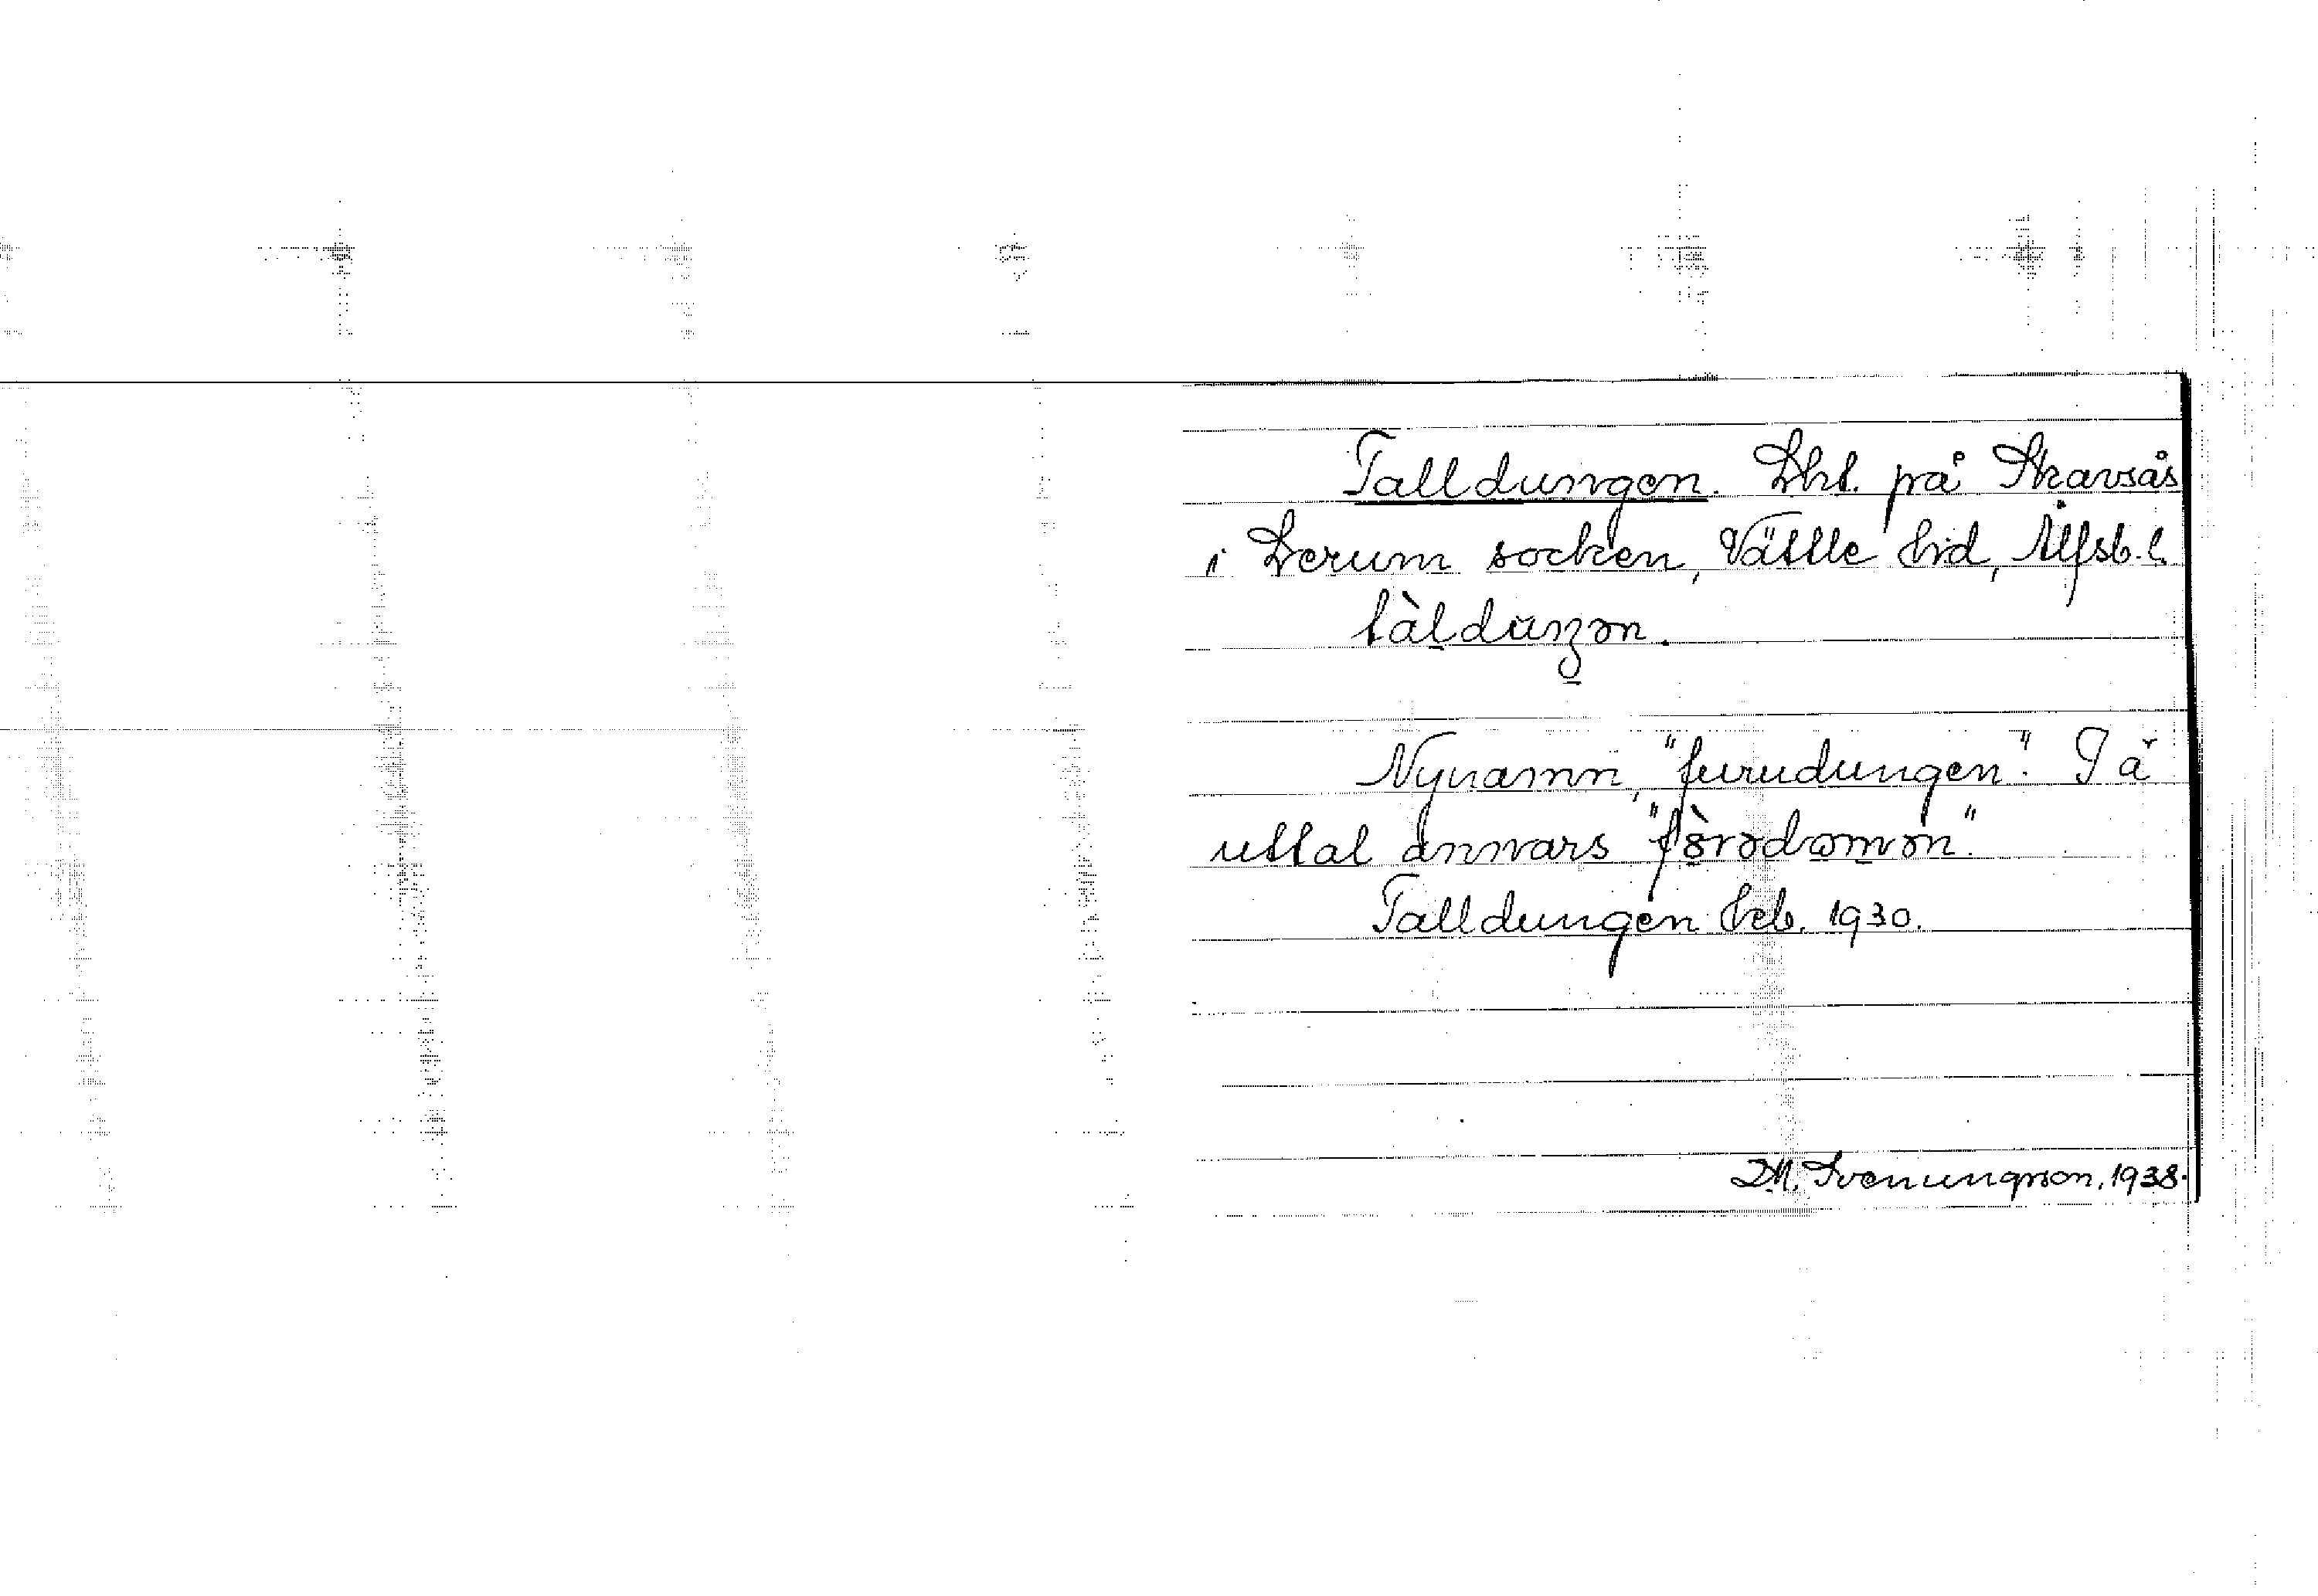 Talldungen. Lht. på Skarsås
i Lerum socken, Vättle hrd, Älfsb. l.
tàlduŋən.
Nynamn, "furudungen". På
uttal annars "fòrədoŋən".
Talldungen heb. 1930.
D.A. Svenungsson, 1938.